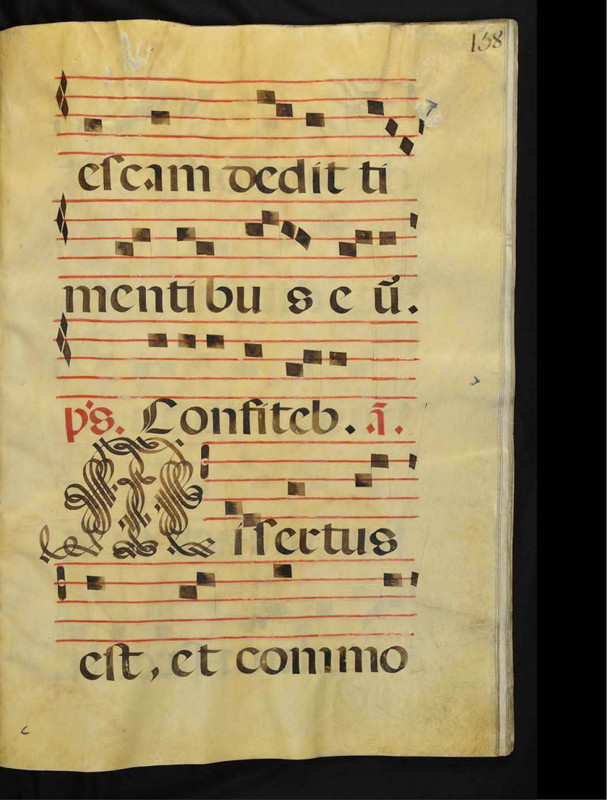 158
escam dedit ti
mentibu s e ũ.
p̃s. Confiteb. ã.
Misertus
est, et commo